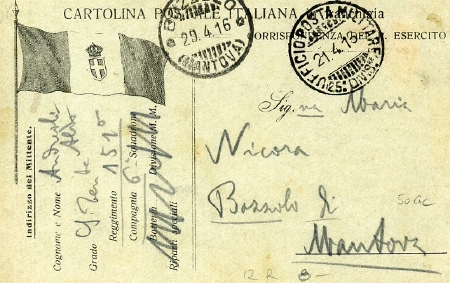 CARTOLINA POSTALE ITALIANA in franchigia
CORRISPONDENZA DEL R. ESERCITO
BOZZOLO
29.4.16
(MANTOVA)
UFFICIO POSTA MILITARE
21.4.16
25ª DIVISIONE
Indirizzo del Mittente.
Cognome e Nome
Grado
Reggimento 151º
Compagnia 6ª Squadrone
Batteria Divisione M. M.
Riparti speciali
Sig.na Maria
Nicora
Bozzolo di
Mantova